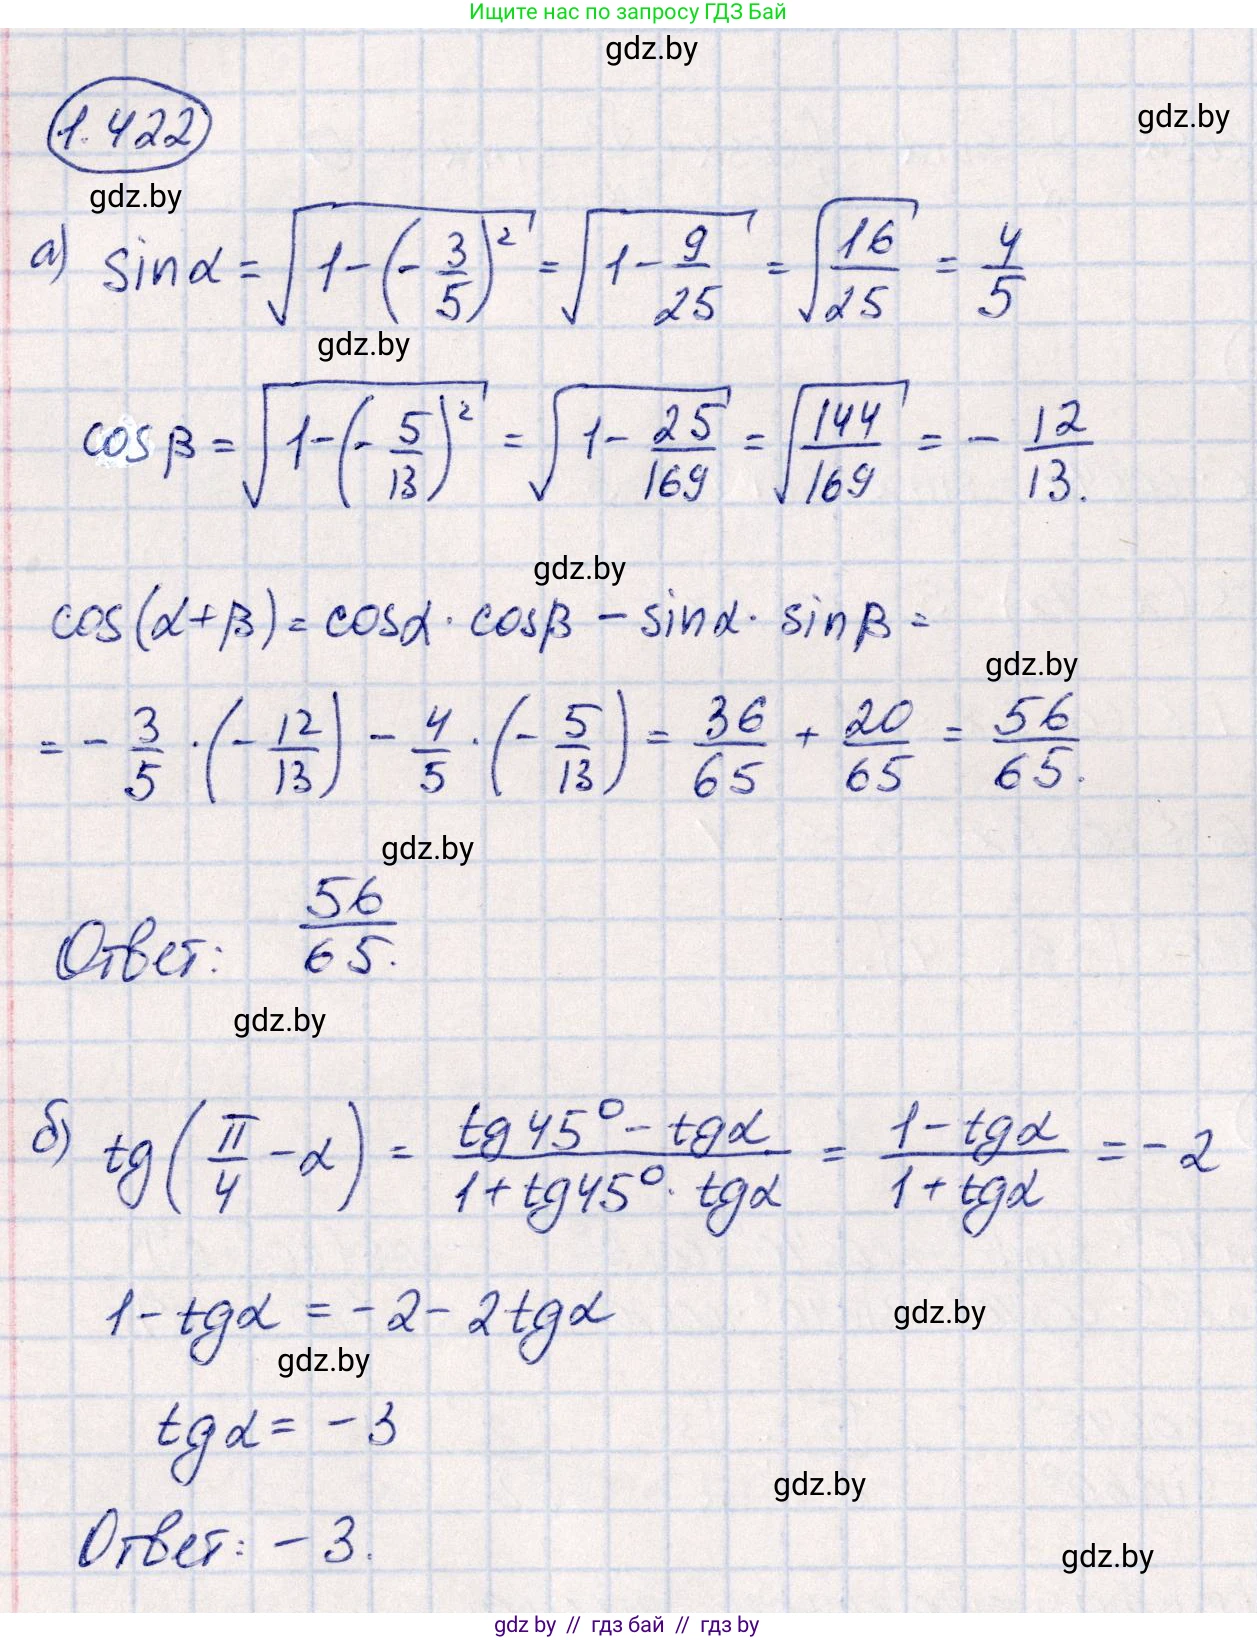 Ищите нас по запросу ГДЗ Бай
gdz.by
1.422
gdz.by
gdz.by
а) sinα = √(1-(-3/5)²) = √(1-9/25) = √(16/25) = 4/5
gdz.by
cosβ = √(1-(-5/13)²) = √(1-25/169) = √(144/169) = -12/13.
gdz.by
cos(α+β) = cosα · cosβ - sinα · sinβ =
gdz.by
= -3/5 · (-12/13) - 4/5 · (-5/13) = 36/65 + 20/65 = 56/65.
gdz.by
Ответ: 56/65.
gdz.by
б) tg(π/4 - α) = (tg45° - tgα)/(1 + tg45° · tgα) = (1 - tgα)/(1 + tgα) = -2
1 - tgα = -2 - 2tgα
gdz.by
gdz.by
tgα = -3
gdz.by
Ответ: -3.
gdz.by
gdz by // гдз бай // гдз by